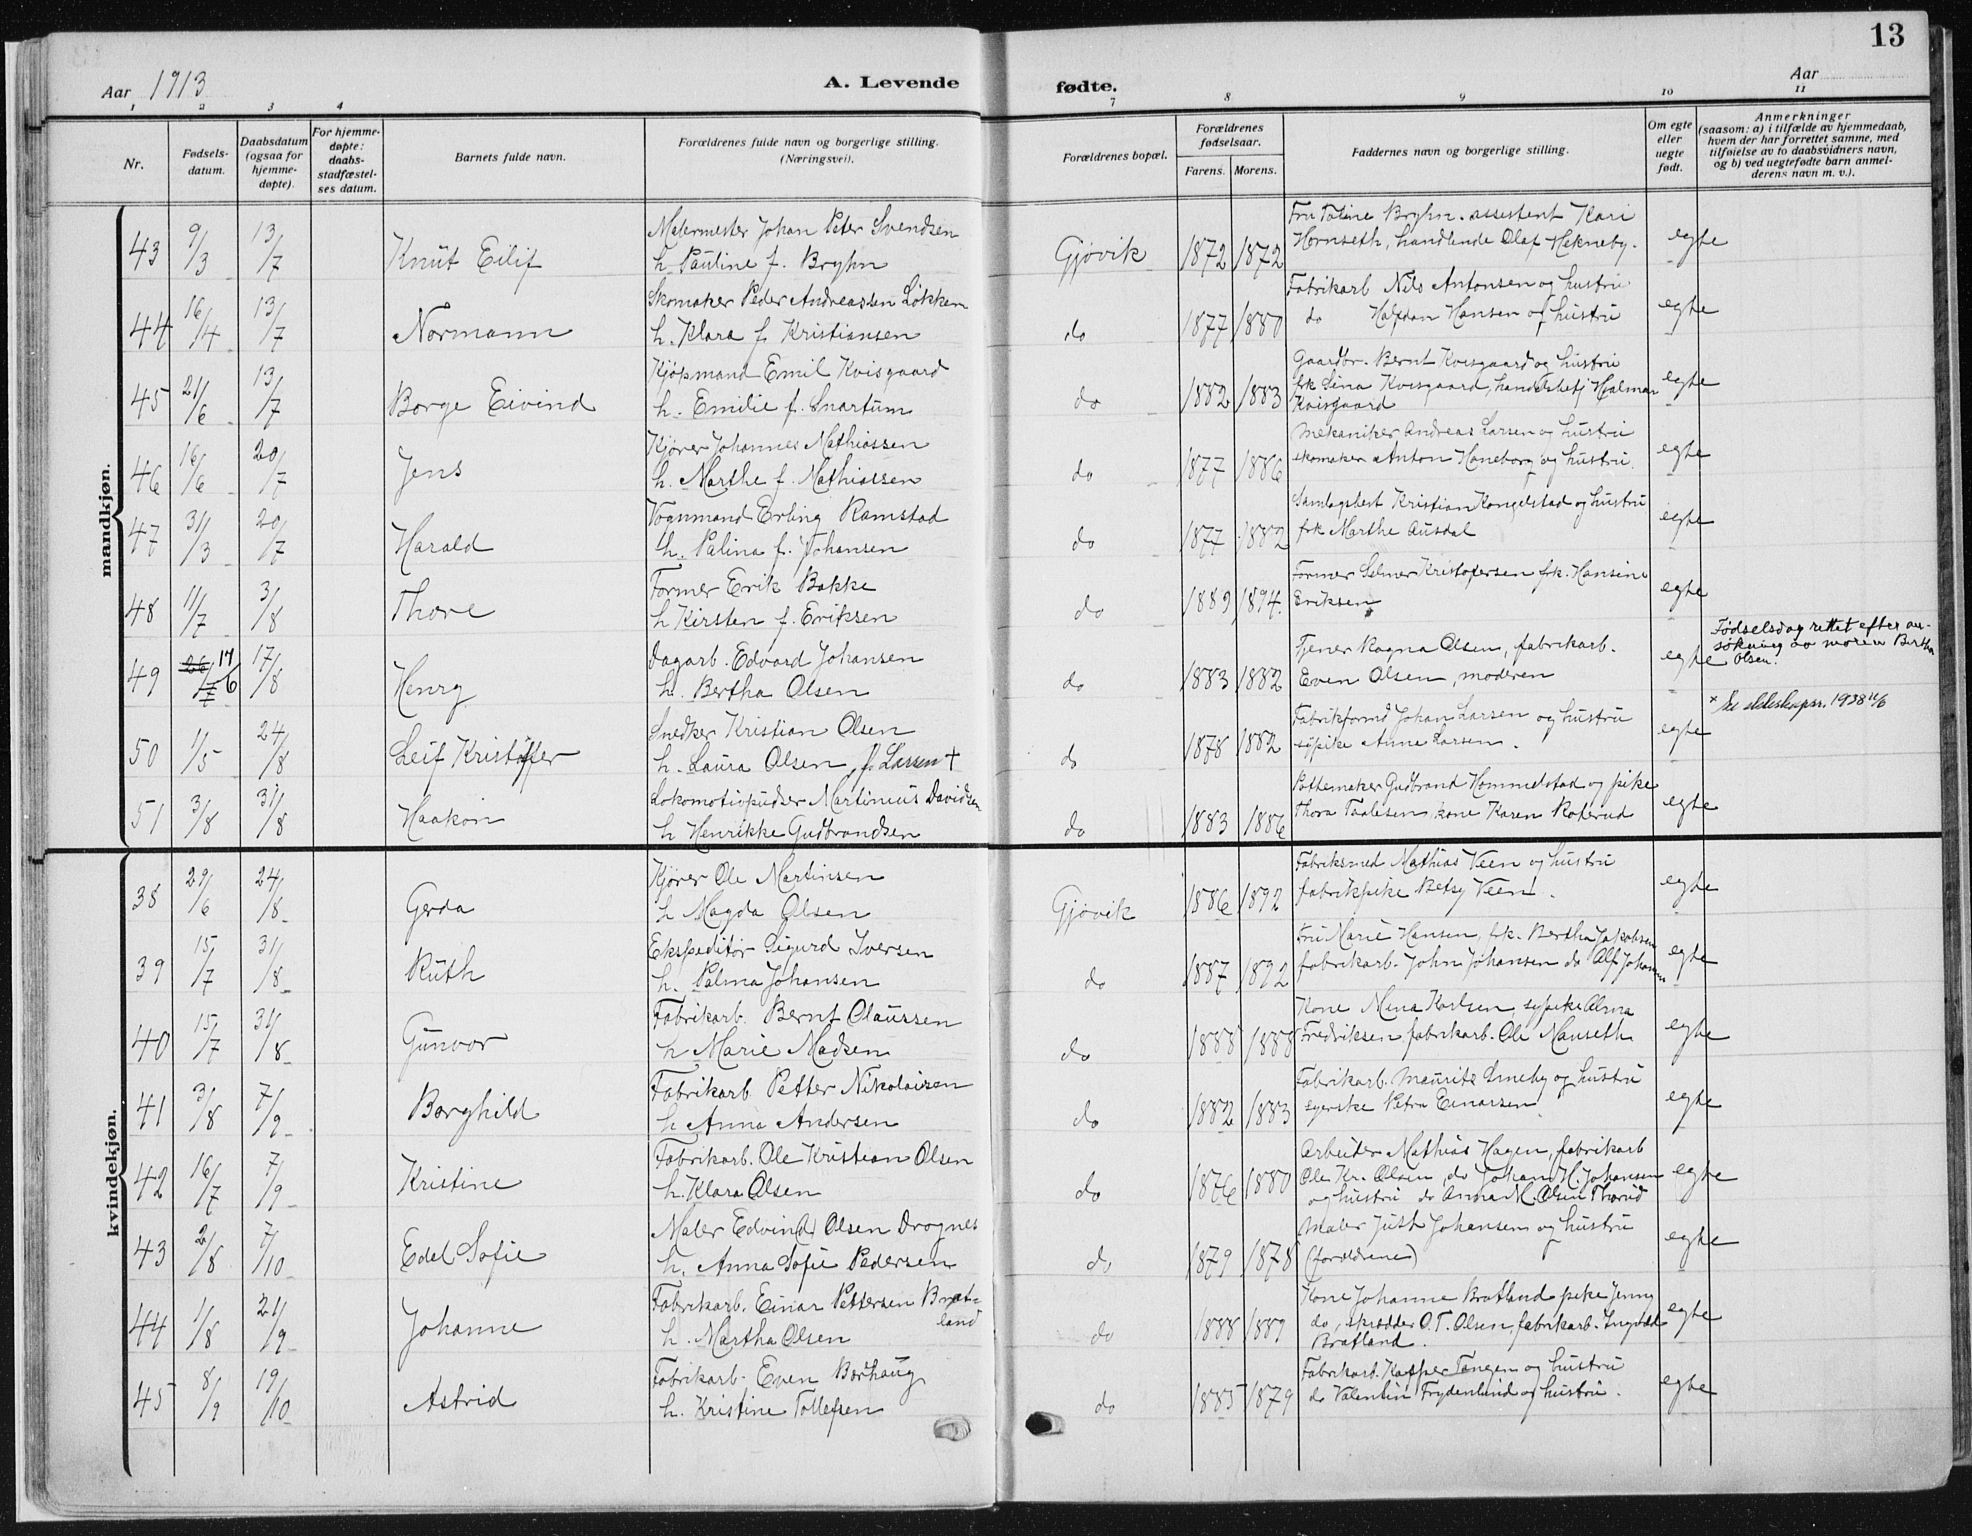 13
Aar 1913
A. Levende
fødte.
Aar
1 2 3 4
7 8 9 10 11
Nr.
Fødsels-
datum.
Daabsdatum
(ogsaa for
hjemme-
døpte).
For hjemme-
døpte:
daabs-
stadfæstel-
ses datum.
Barnets fulde navn.
Forældrenes fulde navn og borgerlige stilling.
(Næringsvei).
Forældrenes bopæl.
Forældrenes
fødselsaar.
Farens. Morens.
Faddernes navn og borgerlige stilling.
Om egte
eller
uegte
født.
Anmerkninger
(saasom: a) i tilfælde av hjemmedaab,
hvem der har forrettet samme, med
tilføielse av to daabsvidners navn,
og b) ved uegtefødte barn anmel-
derens navn m. v.).
mandkjøn.
43 9/3 13/7 Knut Eilif
Malermester Johan Peter Svendsen
h. Pauline f. Bryhn
Gjøvik 1872 1872
Fru Toline Bryhn. assistent Kari
Hornseth, handlende Olaf Hekneby.
egte
44 16/4 13/7 Normann
Skomaker Peder Andreassen Løkken
h. Klara f. Kristiansen
do 1877 1880
Fabrikarb Nils Antonsen og hustru
do Halfdan Hansen og hustru
egte
45 21/6 13/7 Borge Eivind
Kjøpmand Emil Kvisgaard
h. Emilie f. Snartum
do 1882 1883
Gaardbr. Bernt Kvisgaard og hustru
frk Lina Kvisgaard, handelsbetj Hjalmar
Kvisgaard
egte
46 16/6 20/7 Jens
Kjører Johannes Mathiassen
h. Marthe f. Mathiassen
do 1877 1886
Mekaniker Andreas Larsen og hustru
skomaker Anton Haneborg og hustru.
egte
47 31/3 20/7 Harald
Vognmand Erling Ramstad
h. Palina f. Johansen
do 1877 1882
Samlagsbest Kristian Kongelstad og hustru
frk Marthe Ausdal
egte
48 11/7 3/8 Thore
Former Erik Bakke
h Kirsten f. Eriksen
do 1889 1894.
Former Selmer Kristofersen frk. Hansine
Eriksen
egte
49 26/7 17/6 17/8 Henry
Dagarb. Edvard Johansen
h. Bertha Olsen
do 1883 1882
Tjener Ragna Olsen, fabrikarb.
Even Olsen, moderen
egte
Fødselsdag rettet efter an-
søkning av moren Bertha
Olsen.
50 1/5 24/8 Leif Kristoffer
Snedker Kristian Olsen
h. Laura Olsen, f. Larsen +
do 1878 1882
Fabrikformd Johan Larsen og hustru
sypike Anne Larsen.
egte
x Se 1938 11/6
51 3/8 31/8 Haakon
Lokomotivpudser Martinius Davidsen
h Henrikke Gudbrandsen
do 1883 1886
Pottemaker Gudbrand Hommelstad og pike
Thora Taalesen, kone Karen Roterud
egte
kvindekjøn.
38 29/6 24/8 Gerda
Kjører Ole Martinsen
h Magda Olsen
Gjøvik 1886 1892
Fabriksmed Mathias Veen og hustru
fabrikpike Betsy Veen.
egte
39 15/7 31/8 Ruth
Ekspeditør Sigurd Iversen
h. Palma Johansen
do 1887 1892
Fru Marie Hansen, frk. Bertha Jakobsen
fabrikarb. John Johansen do Alf Johansen
egte
40 15/7 31/8 Gunvor
Fabrikarb. Bernt Olaussen
h Marie Madsen
do 1888 1888
Kone Mina Karlsen sypike Alma
Fredriksen fabrikarb. Ole Manseth
egte
41 3/8 7/9 Borghild
Fabrikarb Petter Nikolaisen
h Anna Andersen
do 1882 1883
Fabrikarb. Mauritz Smeby og hustru
syerske Petra Einarsen
egte
42 16/7 7/9 Kristine
Fabrikarb. Ole Kristian Olsen
h. Klara Olsen
do 1876 1880
Arbeider Mathias Hagen, fabrikarb
Ole Kr. Olsen, do Johan M. Johansen
og hustru do Anna M. Olsen Thorud
egte
43 2/8 7/10 Edel Sofie
Maler Edvin(d) Olsen Drognes
h. Anna Sofie Pedersen
do 1879 1878
Maler Just Johansen og hustru
(forældrene)
egte
44 1/8 21/9 Johanne
Fabrikarb. Einar Pettersen Brat-
land
h. Martha Olsen
do 1888 1889
Kone Johanne Bratland pike Jenny
do, skrædder O.T. Olsen, fabrikarb. Ingvald
Bratland.
egte
45 8/9 19/10 Astrid
Fabrikarb. Even Borhaug
h. Kristine Tollefsen
do 1885 1879
Fabrikarb. Kasper Tangen og hustru
do Valentin Frydenlund og hustru.
egte